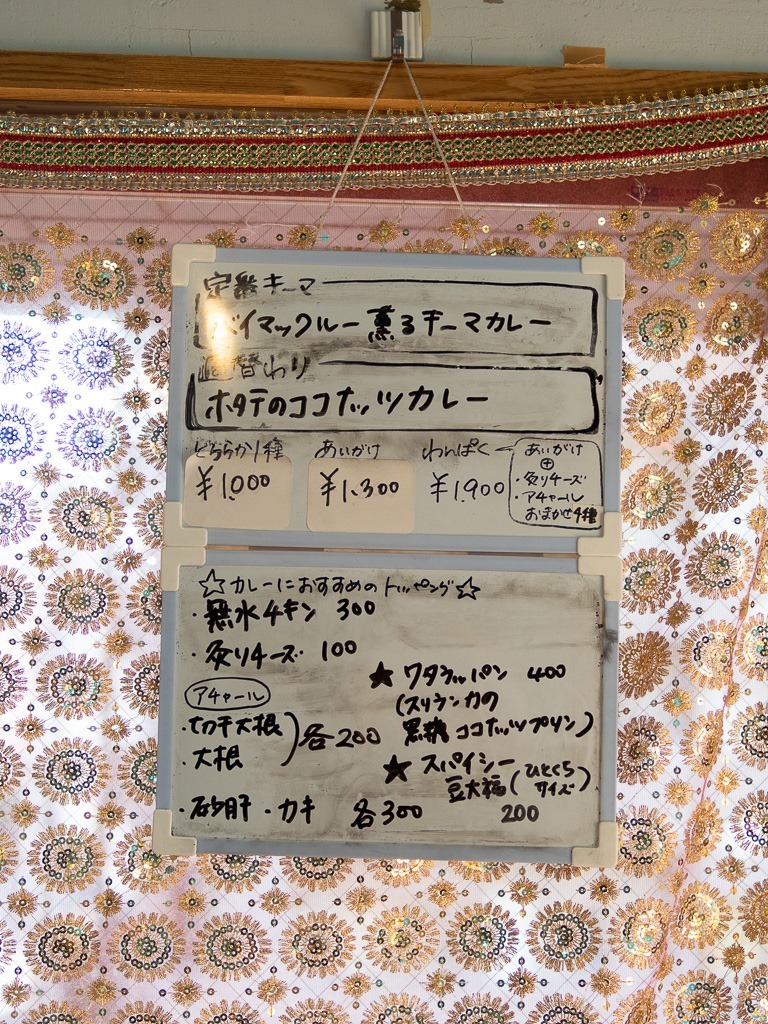 定番キーマ
バイマックルー薫るキーマカレー
週替わり
ホタテのココナッツカレー
どちらか1種
¥1,000
あいがけ
¥1,300
わんぱく
¥1,900
あいがけ
+
・炙りチーズ
・アチャール
おまかせ4種
☆カレーにおすすめのトッピング☆
・無水チキン 300
・炙りチーズ 100
アチャール
・切干大根
・大根
各200
・砂肝 ・カキ 各300
★ワタラッパン 400
(スリランカの
黒糖ココナッツプリン)
★スパイシー
豆大福(ひとくちサイズ)
200